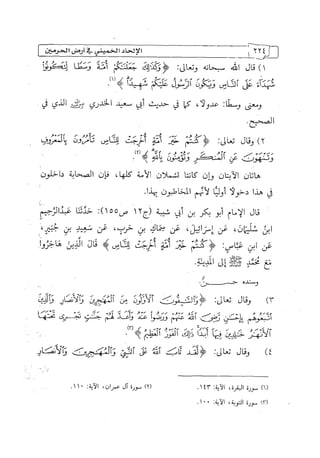 ٢٢٤ الإلحاد الخميني في أرض الحرمين
١) قال الله سبحانه وتعالى: ﴿وَكَذَٰلِكَ جَعَلْنَاكُمْ أُمَّةً وَسَطًا لِتَكُونُوا
شُهَدَاءَ عَلَى النَّاسِ وَيَكُونَ الرَّسُولُ عَلَيْكُمْ شَهِيدًا﴾(١).
ومعنى وسطا: عدولا، كما في حديث أبي سعيد الخدري الذي في
الصحيح.
٢) وقال تعالى: ﴿كُنْتُمْ خَيْرَ أُمَّةٍ أُخْرِجَتْ لِلنَّاسِ تَأْمُرُونَ بِالْمَعْرُوفِ
وَتَنْهَوْنَ عَنِ الْمُنْكَرِ وَتُؤْمِنُونَ بِاللَّهِ﴾(٢).
هاتان الآيتان وإن كانتا تشملان الأمة كلها، فإن الصحابة داخلون
في هذا دخولا أوليًا لأنهم المخاطبون بهذا.
قال الإمام أبو بكر بن أبي شيبة (ج١٢ ص١٥٥): حدثنا عبدالرحيم
ابن سليمان، عن إسرائيل، عن سماك بن حرب، عن سعيد بن جبير،
عن ابن عباس: ﴿كُنْتُمْ خَيْرَ أُمَّةٍ أُخْرِجَتْ لِلنَّاسِ﴾ قال الذين هاجروا
مع محمد ﷺ إلى المدينة.
وسنده حسن
٣) وقال تعالى: ﴿وَالسَّابِقُونَ الْأَوَّلُونَ مِنَ الْمُهَاجِرِينَ وَالْأَنْصَارِ وَالَّذِينَ
اتَّبَعُوهُمْ بِإِحْسَانٍ رَضِيَ اللَّهُ عَنْهُمْ وَرَضُوا عَنْهُ وَأَعَدَّ لَهُمْ جَنَّاتٍ تَجْرِي تَحْتَهَا
الْأَنْهَارُ خَالِدِينَ فِيهَا أَبَدًا ذَٰلِكَ الْفَوْزُ الْعَظِيمُ﴾(٣).
٤) وقال تعالى: ﴿لَقَدْ تَابَ اللَّهُ عَلَى النَّبِيِّ وَالْمُهَاجِرِينَ وَالْأَنْصَارِ
(١) سورة البقرة، الآية: ١٤٣. (٢) سورة آل عمران، الآية: ١١٠.
(٣) سورة التوبة، الآية: ١٠٠.